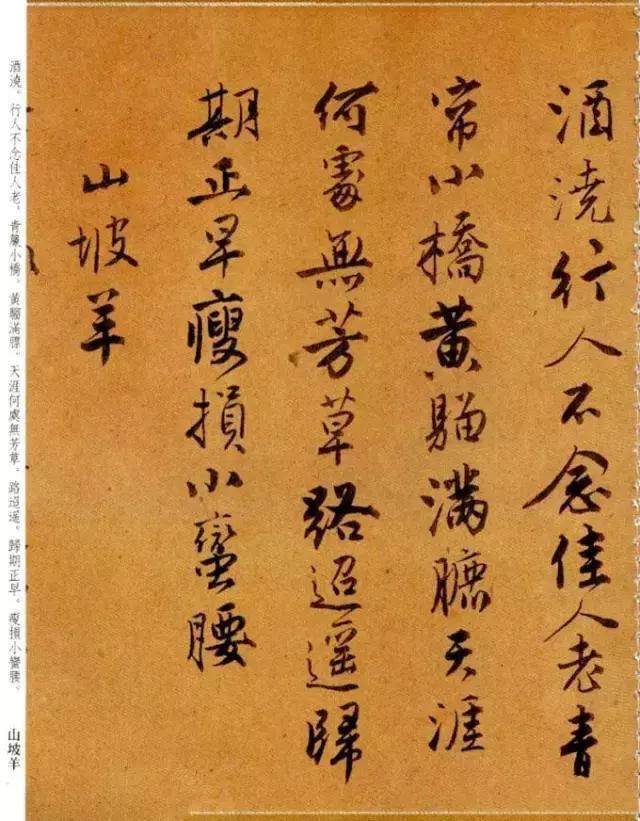 酒澆行人不念佳人老青
帘小橋黃騮滿臕天涯
何處無芳草路迢遥歸
期正早瘦損小蠻腰
山坡羊
酒澆。行人不念佳人老。青簾小橋。黃騮滿膘。天涯何處無芳草。路迢遥。歸期正早。瘦損小蠻腰。
山坡羊